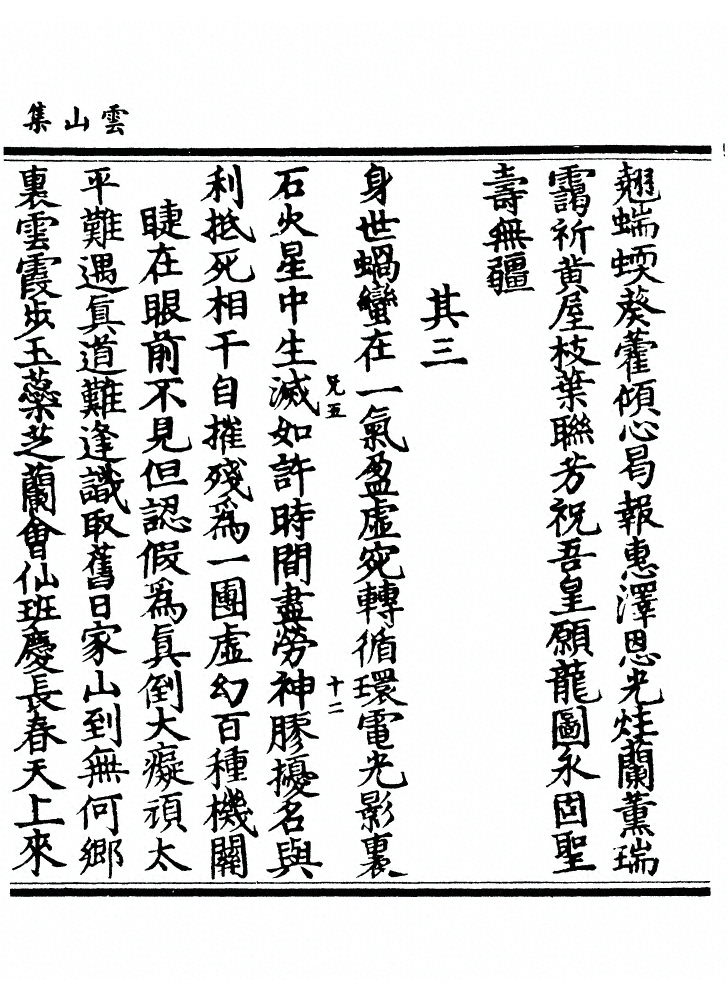 雲山集
翹蠕蝡葵藿傾心曷報惠澤恩光炷蘭薰瑞
靄祈黄屋枝葉聯芳祝吾皇願龍圖永固聖
壽無疆
其三
身世蝸蠻在一氣盈虛宛轉循環電光影裏
石火星中生滅如許時間盡勞神膠擾名與
兄五
十二
利抵死相干自摧殘為一團虛幻百種機關
睫在眼前不見但認假為真倒大癡頑太
平難遇真道難逢識取舊日家山到無何鄉
裏雲霞步玉蘂芝蘭會仙班慶長春天上來